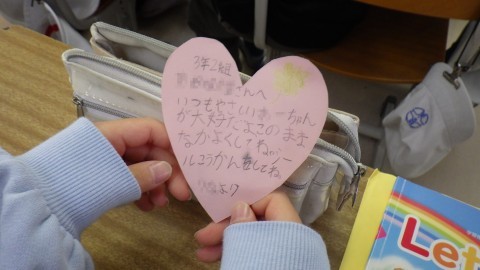 3年2組
さんへ
いつもやさしいあーちゃん
が大好きだよこのまま
なかよくしてねメー
ルこうかんもしてね
より
Let